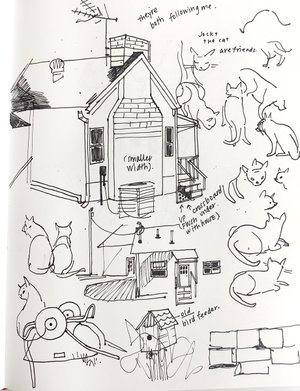 they're
both following me.
Jocks
the cat
are friends.
(smaller
width).
(porch under
with house)
old
bird feeder.